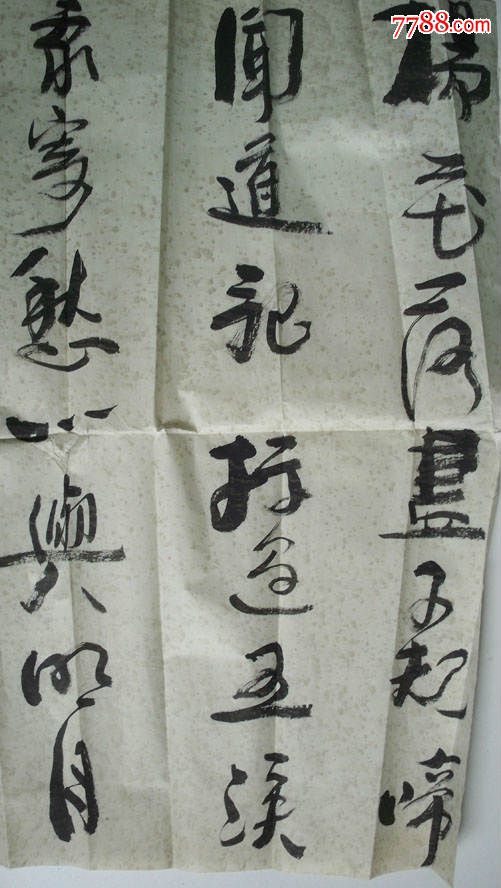 7788.com
楊花落盡子規啼
聞道龍標過五溪
我寄愁心與明月